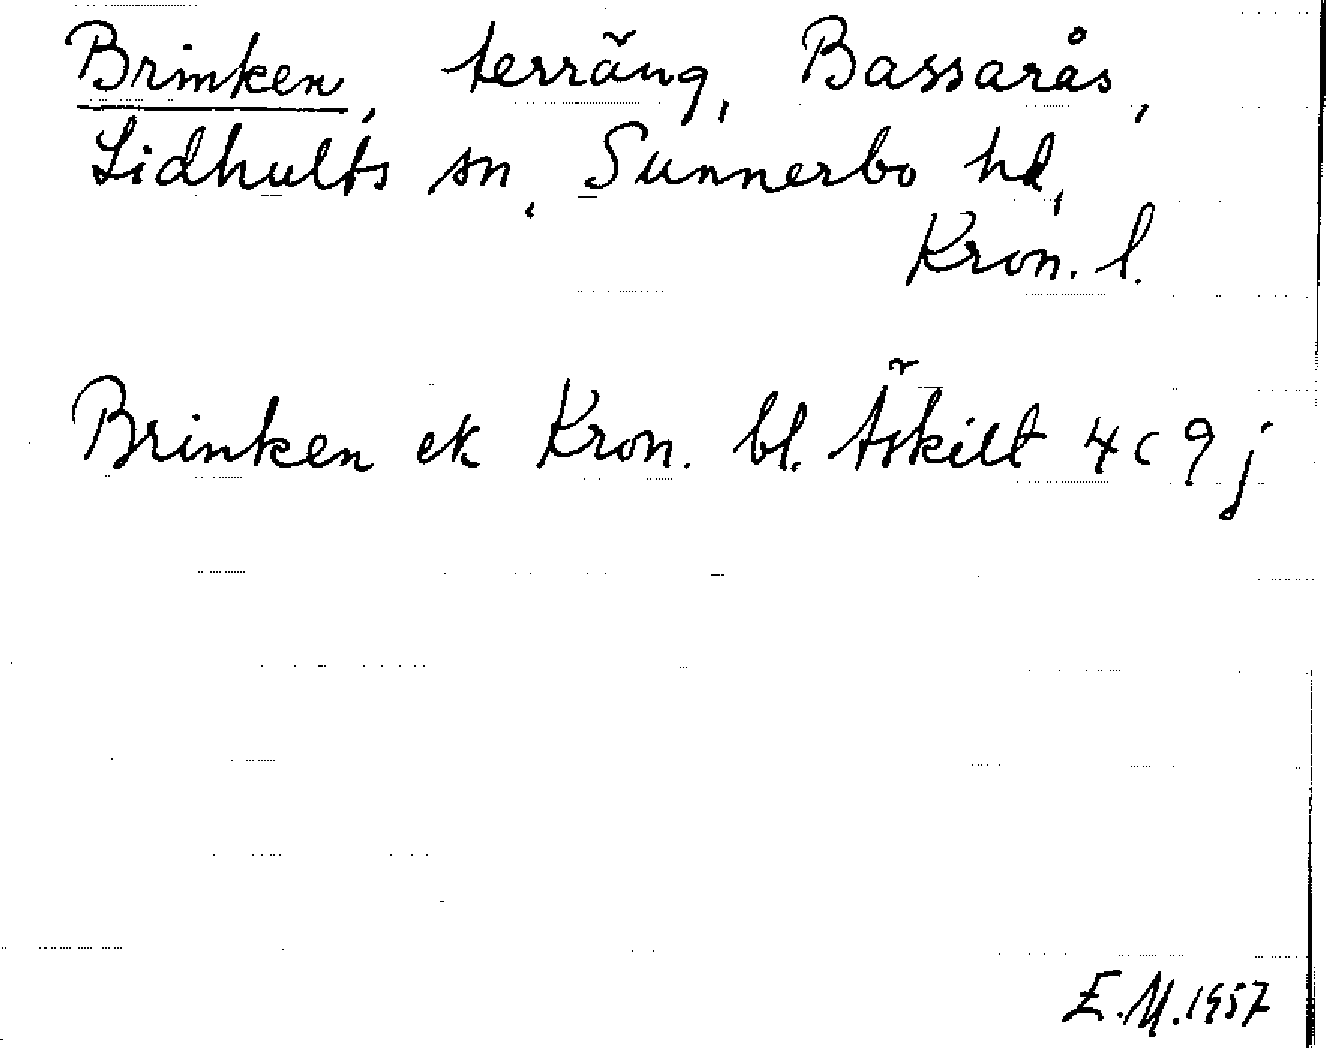 Brinken, terräng, Bassarås,
Lidhults sn, Sunnerbo hd,
Kron. l.
Brinken ek Kron. bl. Äskilt 4 c 9 j
E.M.1957